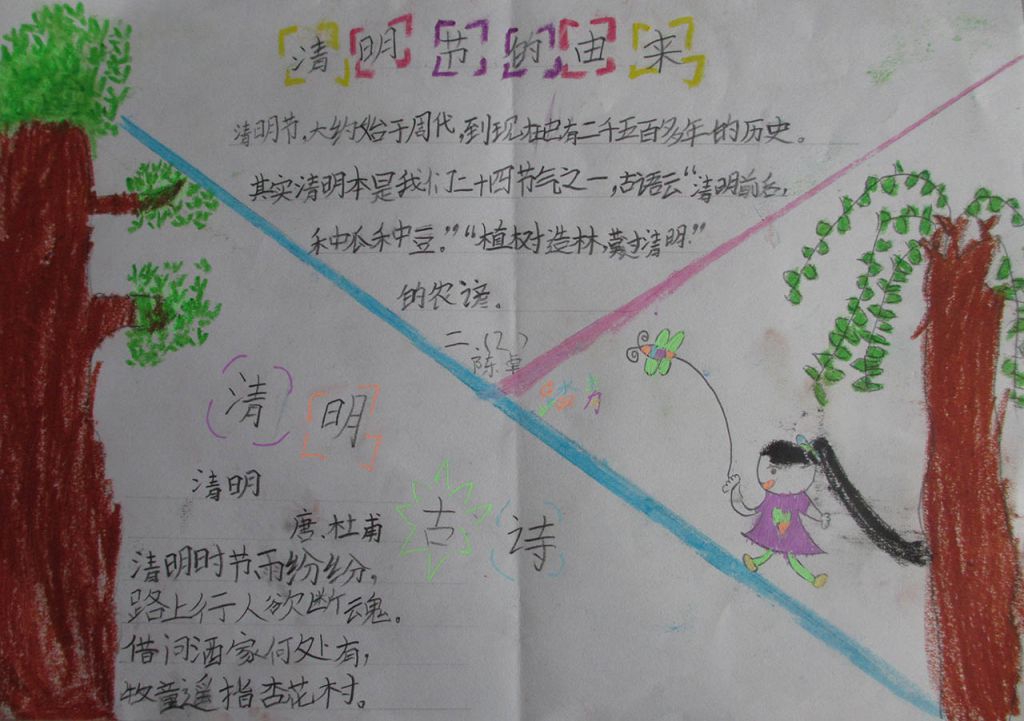 清明节的由来
清明节，大约始于周代，到现在已有二千五百多年的历史。
其实清明本是我们二十四节气之一，古语云“清明前后，
种瓜种豆。”“植树造林，莫过清明。”
的农谚。
二.(2)
陈卓
清明
古诗
清明
唐.杜甫
清明时节雨纷纷，
路上行人欲断魂。
借问酒家何处有，
牧童遥指杏花村。